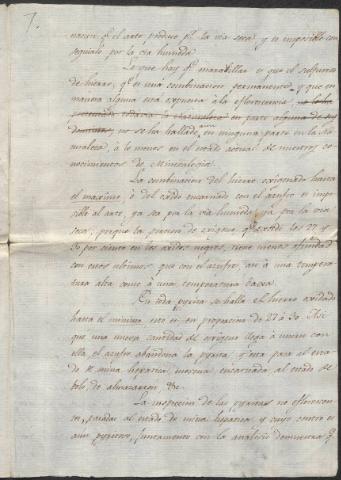 7.
nacion q.e el arte produce p.r la via seca y es imposible con
seguirlo por la via humeda.
Lo que hay q.e maravillar es que el sulfureto
de hierro, q.e es una combinacion permanente, y que en
manera alguna está expuesta a la eflorescencia,
en parte alguna de sus
no se ha hallado aun en ninguna parte en la Na
turaleza, à lo menos en el estado actual de nuestros co
nocimientos de Mineralogia.
La combinacion del hierro oxidado hasta
el maximo, ò del oxido encarnado con el azufre es impo
sible al arte, ya sea por la via humeda, ya por la via
seca; porque la porcion de oxigeno, que excede los 27 y
30 por ciento en los oxides negros, tiene menos afinidad
con estos ultimos, que con el azufre, asi à una tempera
tura alta como à una temperatura baxa.
En toda pyrita se halla el hierro oxidado
hasta el minimo, esto es en proporcion de 27 à 30. Asi
que una nueva cantidad de oxigeno llega à unirse con
ella, el azufre abandona la pyrita, y esta pasa al esta
do de mina hepatica, morena, encarnada, al estado de
bolo, de almazarron &c.
La inspeccion de las pyritas no eflorescen
tes, pasadas al estado de mina hepatica, y cuyo centro es
aun pyritoso, juntamente con la analisis demuestra q.e